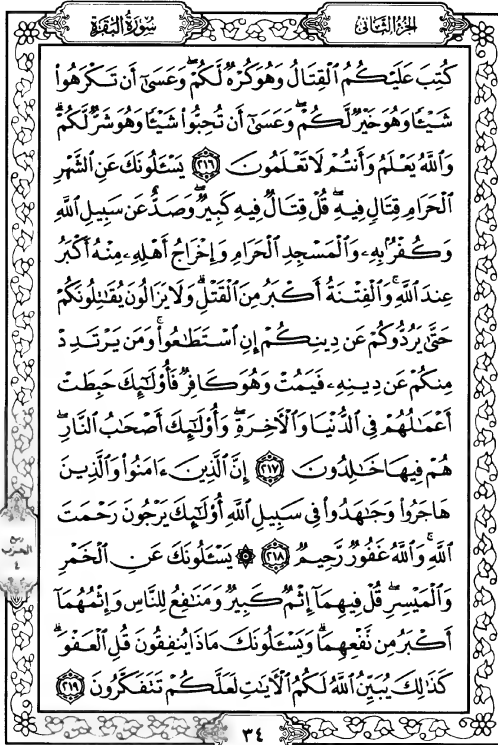 سورة البقرة
الجزء الثاني
كُتِبَ عَلَيْكُمُ ٱلْقِتَالُ وَهُوَ كُرْهٌ لَّكُمْ ۖ وَعَسَىٰٓ أَن تَكْرَهُوا۟
شَيْـًٔا وَهُوَ خَيْرٌ لَّكُمْ ۖ وَعَسَىٰٓ أَن تُحِبُّوا۟ شَيْـًٔا وَهُوَ شَرٌّ لَّكُمْ ۗ
وَٱللَّهُ يَعْلَمُ وَأَنتُمْ لَا تَعْلَمُونَ ٢١٦ يَسْـَٔلُونَكَ عَنِ ٱلشَّهْرِ
ٱلْحَرَامِ قِتَالٍ فِيهِ ۖ قُلْ قِتَالٌ فِيهِ كَبِيرٌ ۖ وَصَدٌّ عَن سَبِيلِ ٱللَّهِ
وَكُفْرٌۢ بِهِۦ وَٱلْمَسْجِدِ ٱلْحَرَامِ وَإِخْرَاجُ أَهْلِهِۦ مِنْهُ أَكْبَرُ
عِندَ ٱللَّهِ ۚ وَٱلْفِتْنَةُ أَكْبَرُ مِنَ ٱلْقَتْلِ ۗ وَلَا يَزَالُونَ يُقَـٰتِلُونَكُمْ
حَتَّىٰ يَرُدُّوكُمْ عَن دِينِكُمْ إِنِ ٱسْتَطَـٰعُوا۟ ۚ وَمَن يَرْتَدِدْ
مِنكُمْ عَن دِينِهِۦ فَيَمُتْ وَهُوَ كَافِرٌ فَأُو۟لَـٰٓئِكَ حَبِطَتْ
أَعْمَـٰلُهُمْ فِى ٱلدُّنْيَا وَٱلْـَٔاخِرَةِ ۖ وَأُو۟لَـٰٓئِكَ أَصْحَـٰبُ ٱلنَّارِ ۖ
هُمْ فِيهَا خَـٰلِدُونَ ٢١٧ إِنَّ ٱلَّذِينَ ءَامَنُوا۟ وَٱلَّذِينَ
هَاجَرُوا۟ وَجَـٰهَدُوا۟ فِى سَبِيلِ ٱللَّهِ أُو۟لَـٰٓئِكَ يَرْجُونَ رَحْمَتَ
ٱللَّهِ ۚ وَٱللَّهُ غَفُورٌ رَّحِيمٌ ٢١٨ ۞ يَسْـَٔلُونَكَ عَنِ ٱلْخَمْرِ
وَٱلْمَيْسِرِ ۖ قُلْ فِيهِمَآ إِثْمٌ كَبِيرٌ وَمَنَـٰفِعُ لِلنَّاسِ وَإِثْمُهُمَآ
أَكْبَرُ مِن نَّفْعِهِمَا ۗ وَيَسْـَٔلُونَكَ مَاذَا يُنفِقُونَ قُلِ ٱلْعَفْوَ ۗ
كَذَٰلِكَ يُبَيِّنُ ٱللَّهُ لَكُمُ ٱلْـَٔايَـٰتِ لَعَلَّكُمْ تَتَفَكَّرُونَ ٢١٩
ربع
الحزب
٤
٣٤